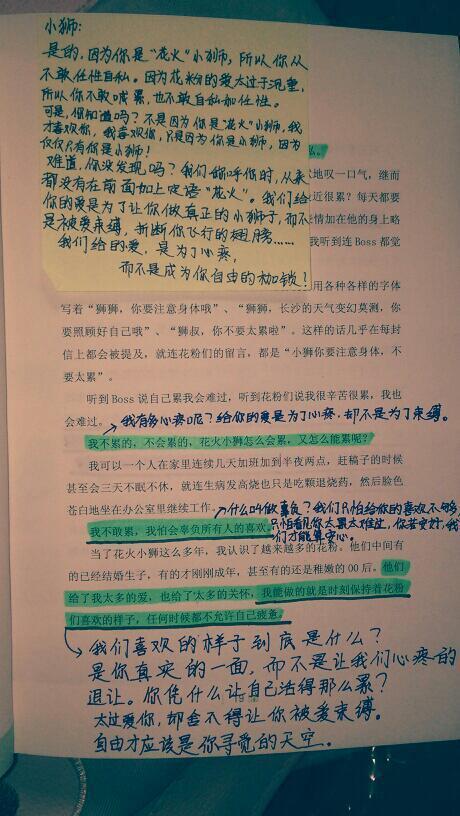 小狮:
是的,因为你是“花火”小狮,所以你从
不敢任性自私。因为花粉的爱太过于沉重,
所以你不敢喊累,也不敢自私和任性。
可是,你知道吗?不是因为你是“花火”小狮,我
才喜欢你,我喜欢你,只是因为你是小狮,因为
仅仅只有你是小狮!
难道,你没发现吗?我们称呼你时,从来
都没有在前面加上定语“花火”。我们给
你的爱是为了让你做真正的小狮子,而不
是被爱束缚,折断你飞行的翅膀……
我们给的爱,是为了心疼,
而不是成为你自由的枷锁!
地叹一口气,继而
近很累?每天都要
情加在他的身上略
我听到连 Boss 都觉
用各种各样的字体
写着“狮狮,你要注意身体哦”、“狮狮,长沙的天气变幻莫测,你
要照顾好自己哦”、“狮叔,你不要太累啦”。这样的话几乎在每封
信上都会被提及,就连花粉们的留言,都是“小狮你要注意身体,不
要太累”。
听到 Boss 说自己累我会难过,听到花粉们说我很辛苦很累,我也
会难过。
我有多心疼呢?给你的爱是为了心疼,却不是为了束缚。
我不累的,不会累的,花火小狮怎么会累,又怎么能累呢?
我可以一个人在家里连续几天加班加到半夜两点,赶稿子的时候
甚至会三天不眠不休,就连生病发高烧也只是吃颗退烧药,然后脸色
苍白地坐在办公室里继续工作。
什么叫做辜负?我们只怕给你的喜欢不够,
只怕看见你太累太难过,你若安好,我
们才能算安心。
我不敢累,我怕会辜负所有人的喜欢。
当了花火小狮这么多年,我认识了越来越多的花粉。他们中间有
的已经结婚生子,有的才刚刚成年,甚至有的还是稚嫩的 00 后。他们
给了我太多的爱,也给了太多的关怀,我能做的就是时刻保持着花粉
们喜欢的样子,任何时候都不允许自己疲惫。
我们喜欢的样子到底是什么?
是你真实的一面,而不是让我们心疼的
退让。你凭什么让自己活得那么累?
太过爱你,却舍不得让你被爱束缚。
自由才应该是你寻觅的天空。